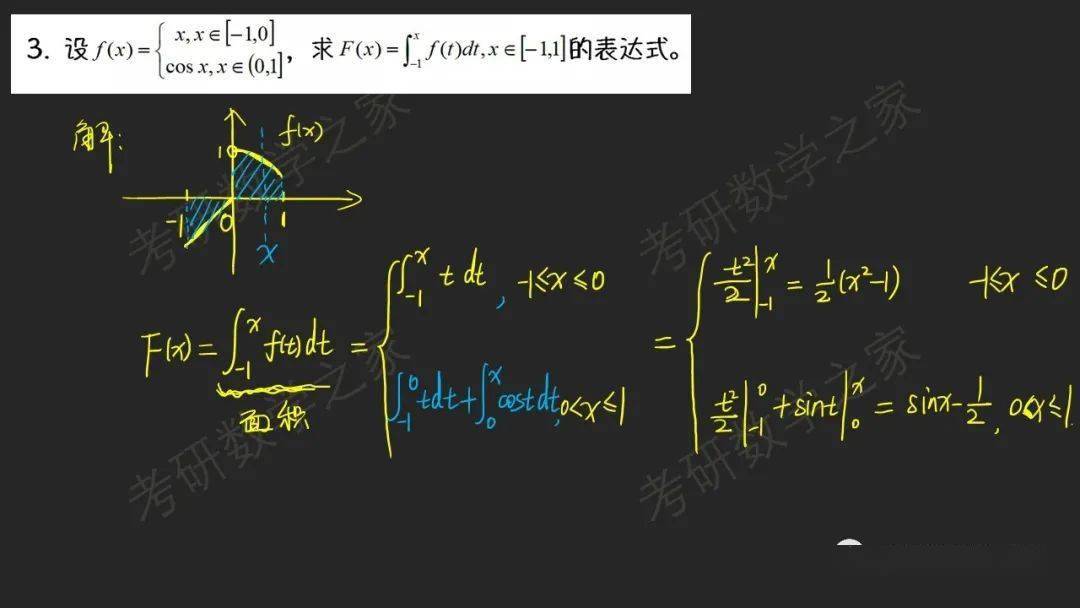 3. 设 f(x) = { x, x ∈ [−1,0]
cos x, x ∈ (0,1] , 求 F(x) = ∫_{-1}^{x} f(t)dt, x ∈ [−1,1] 的表达式。
解:
1 f(x)
-1 0 1
x
F(x) = ∫_{-1}^{x} f(t)dt = { ∫_{-1}^{x} t dt, -1≤x≤0
∫_{-1}^{0} tdt + ∫_{0}^{x} cost dt, 0<x≤1
= { t²/2 |_{-1}^{x} = 1/2 (x²-1) -1≤x≤0
t²/2 |_{-1}^{0} + sint |_{0}^{x} = sinx - 1/2, 0<x≤1
面积
考研数学之家
考研数学之家
考研数学之家
考研数学之家